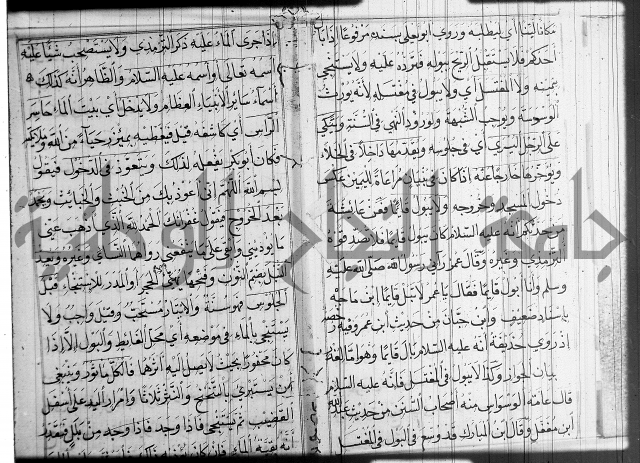 مكانا لينا أي ليطلبه وروي أبو يعلى بسنده مرفوعا إذا بال
أحدكم فلا يستقبل الريح ببوله فترده عليه ولا يستنجي
بيمينه ولا المغتسل أي ولا يبول في مغتسله لأنه يورث
الوسوسة ويوجب الشبهة ولورود النهي في السنة ويتكي
على الرجل اليسرى أي في جلوسه ويقدمها داخلا في الخلاء
ويؤخرها خارجا عنه اذا كان في بنيان مراعاة لليمين على
دخول المسجد وخروجه ولا يبول قائما فعن عائشة
من حدثكم أنه عليه السلام كان يبول قائما فلا تصدقوه
الترمذي وغيره وقال عمر رآني رسول الله صلى الله عليه
وسلم وأنا أبول قائما فقال يا عمر لا تبل قائما ابن ماجه
باسناد ضعيف وابن حبان من حديث ابن عمر وفيه
اذ روي حذيفة أنه عليه السلام بال قائما وهو اما لعذر
بيان الجواز وكذا لا يبول في المغتسل فإنه عليه السلام
قال عامة الوسواس منه أصحاب السنن من حديث عبد الله
ابن مغفل وقال ابن المبارك قد وسع في البول في المغتسل
اذا جرى الماء عليه ذكره الترمذي ولا يستصحب شيئا عليه
اسمه تعالى أو اسمه عليه السلام والظاهر أنه كذلك
أسماء سائر الأنبياء العظام ولا يدخل أي بيت الماء حاسر
الرأس أي كاشفه قيل فيغطيه بمئزر حياء من الله وملائكته
فكان أبو بكر يفعله لذلك ويتعوذ في الدخول فيقول
بسم الله اللهم اني أعوذ بك من الخبث والخبائث ويحمد
بعد الخروج فيقول غفرانك الحمد لله الذي أذهب عني
ما يؤذيني وأبقى علي ما ينفعني رواهما النسائي وغيره ويعد
النبل بضم النون وفتحها أي الحجر أو المدر للاستنجاء قبل
الجلوس فهو سنة والايتار مستحب وقيل واجب ولا
يستنجي بالماء في موضعه أي محل الغايط والبول إلا إذا
كان محفورا بحيث لا يصل إليه أثرهما فالكل مأثور وينبغي
أن يستبرئ بالتنحنح والنثر ثلاثا وامرار اليد على أسفل
القضيب ثم يستنجي فاذا وجد من بلل فيقدر
أنه بقية الماء
جامعة الملك سعود